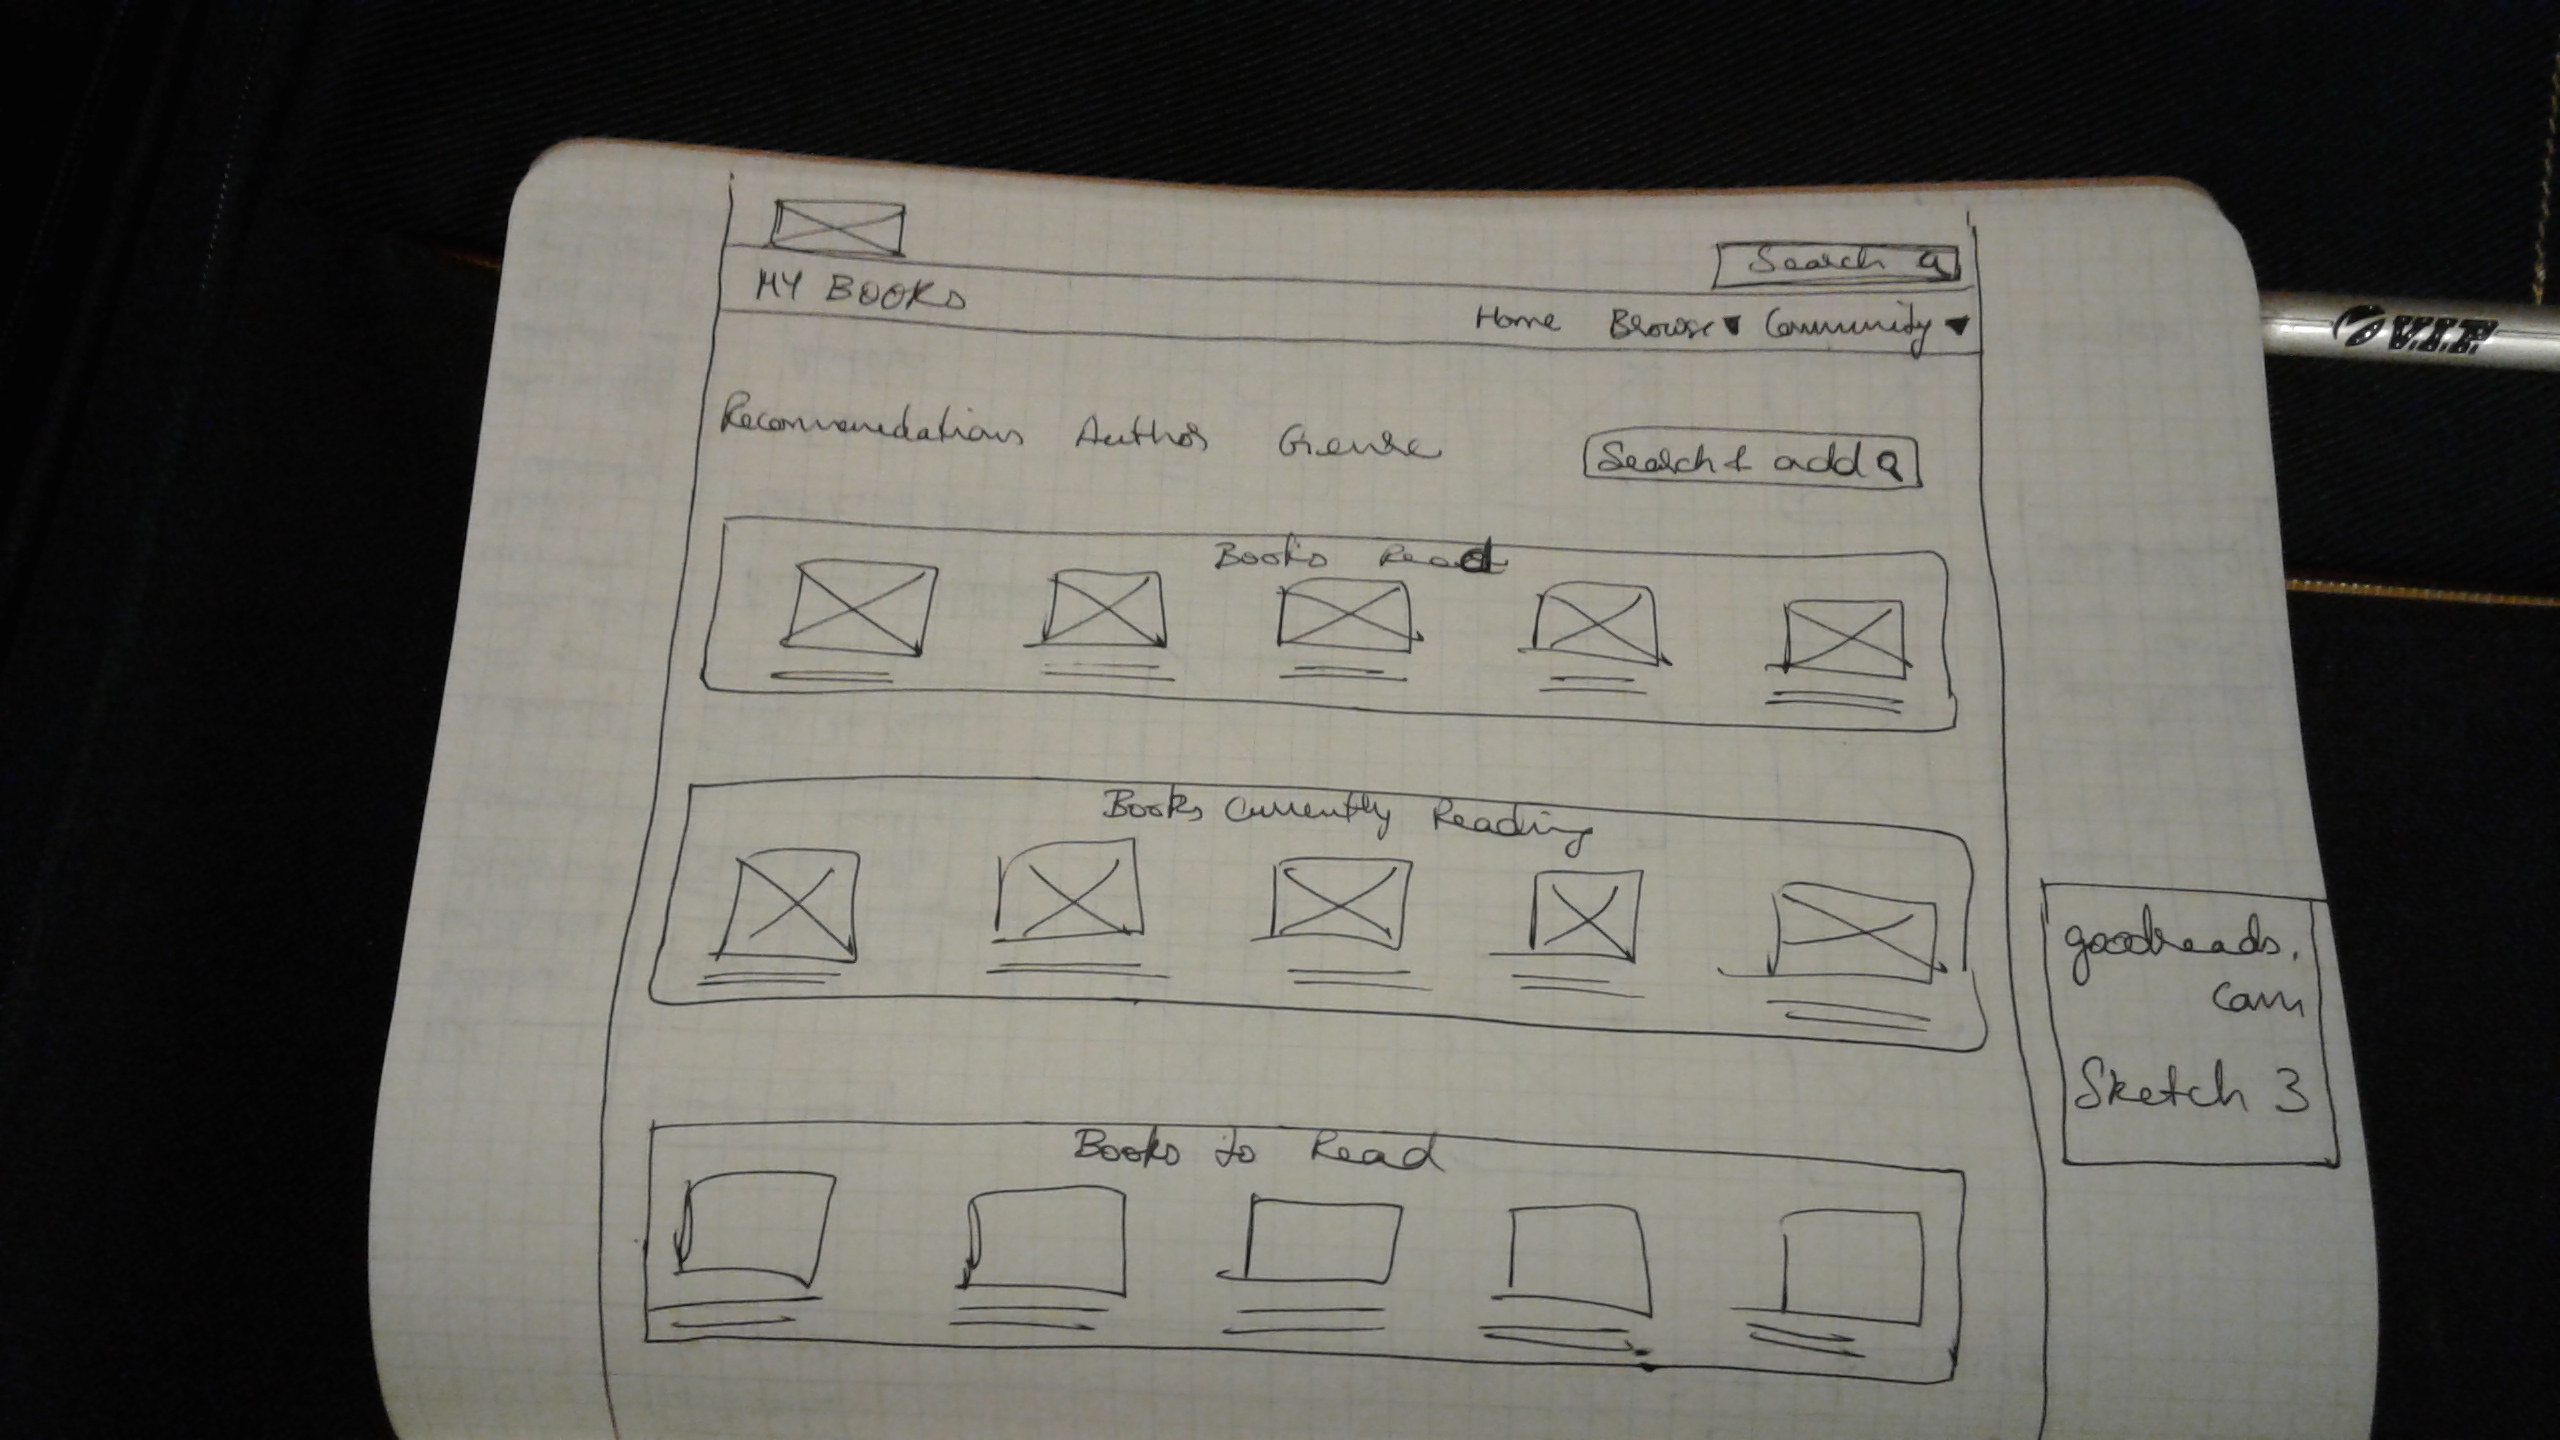 Search
MY BOOKS
Home Browse ▼ Community ▼
Recommendations Author Genre
Search & add
Books Read
Books Currently Reading
Books to Read
goodreads.
com
Sketch 3
V.I.P.